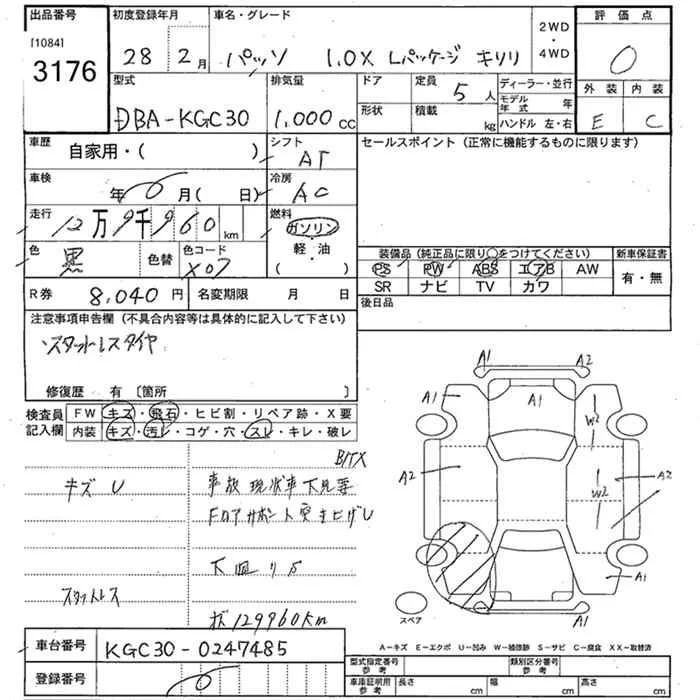 出品番号
[1084]
3176
初度登録年月
28 2月
車名・グレード
パッソ 1.0X Lパッケージ キリリ
2WD
・
4WD
評価点
0
外装 内装
E C
型式
DBA-KGC30
排気量
1,000 cc
ドア
形状
定員
5人
積載
kg
ディーラー・並行
モデル年式 年
ハンドル 左・右
車歴
自家用・( )
シフト
AT
セールスポイント (正常に機能するものに限ります)
車検
年 0 月( 日)
冷房
AC
走行
12万9千960km
燃料
ガソリン
・
軽・油
・
( )
色
黒
色替
色コード
X07
装備品 (純正品に限り○をつけてください)
新車保証書
PS PW ABS エアB AW
SR ナビ TV カワ
有・無
R券 8,040円
名変期限 月 日
後日品
注意事項申告欄 (不具合内容等は具体的に記入して下さい)
スタットレスタイヤ
修復歴 有 〔箇所 〕
検査員
記入欄
FW キズ・飛石・ヒビ割・リペア跡・X要
内装 キズ・汚レ・コゲ・穴・スレ・キレ・破レ
キズ U
事故現状車下見要
下回リS
スタットレス
129960km
A1 A2
A1 A1
W2
A2 A2
W2
A1
スペア
A-キズ E-エクボ U-凹み W-補修跡 S-サビ C-腐食 XX-取替済
車台番号
KGC30-0247485
登録番号
0
型式指定番号
参考
類別区分番号
参考
車庫証明用
参考
長さ cm
幅 cm
高さ cm